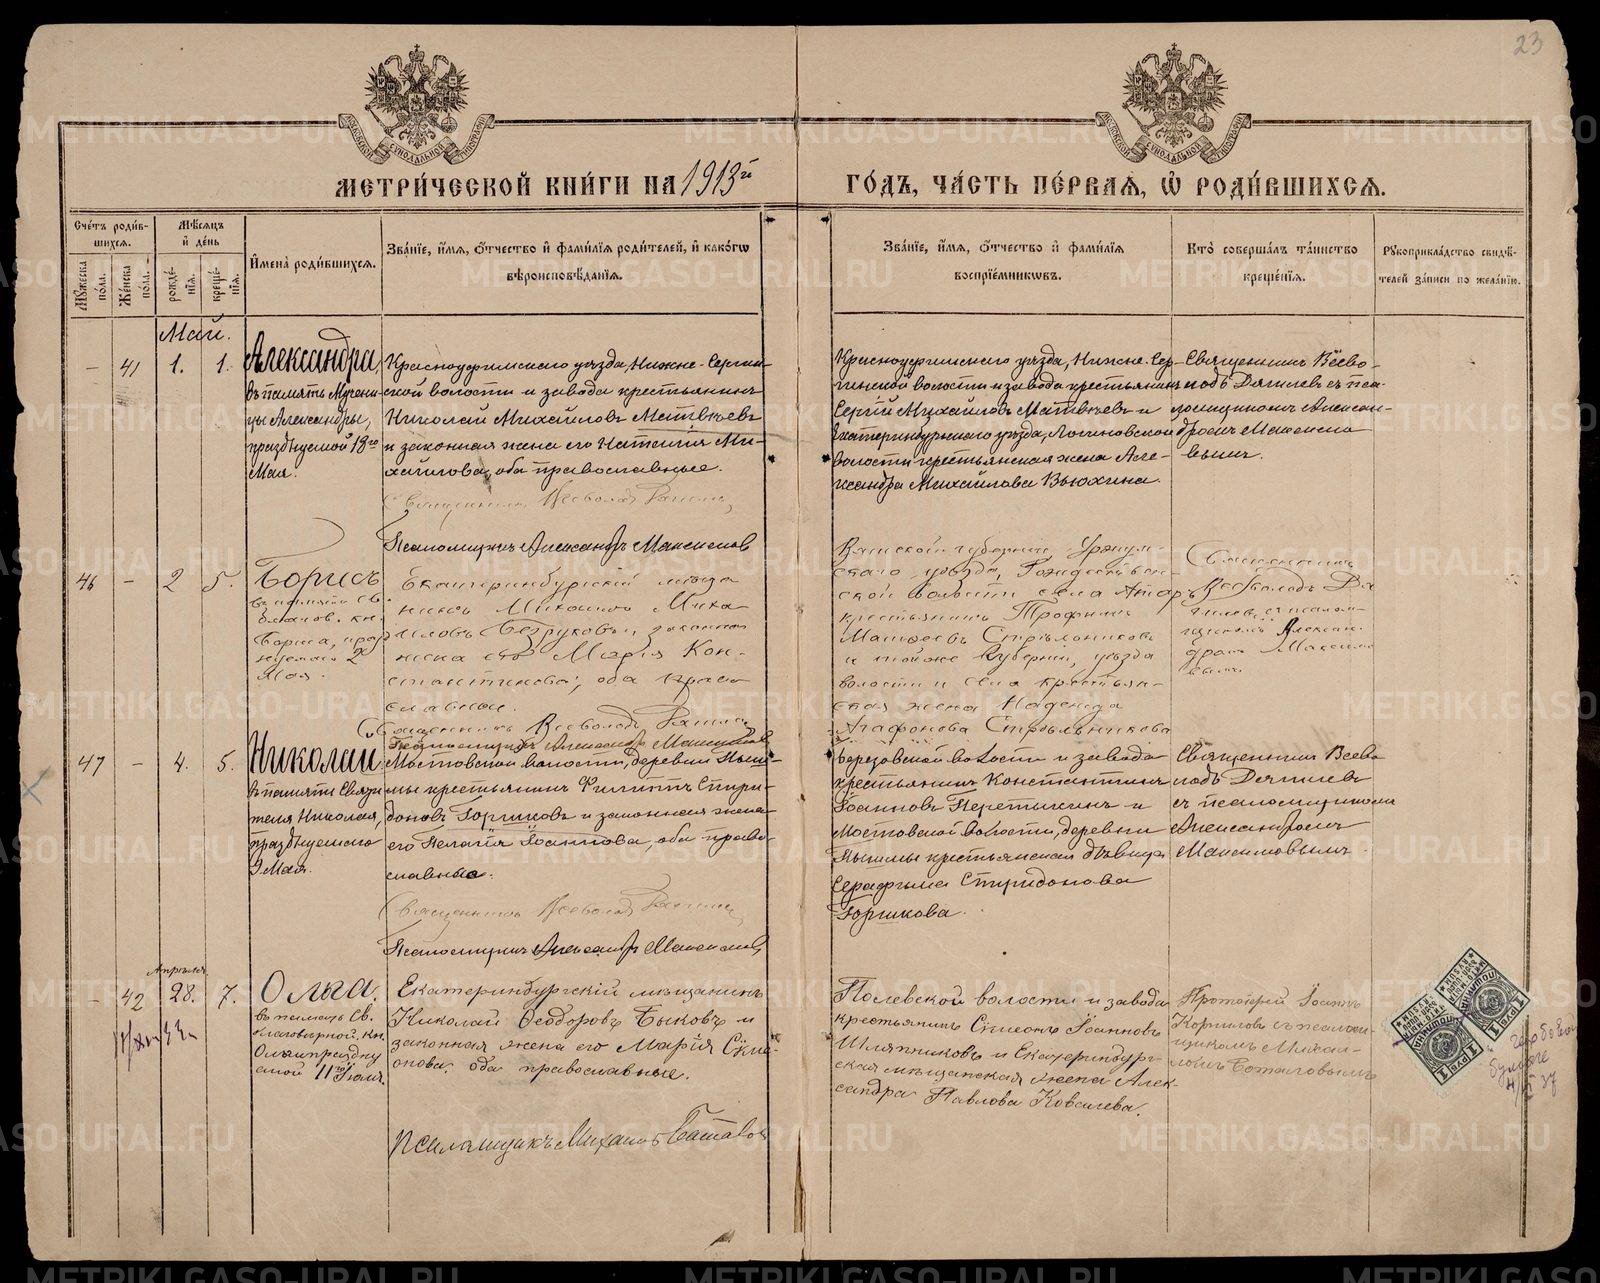 23
МЕТРИ́ЧЕСКОЙ КНИ́ГИ НА 1913го
ГО́ДЪ, ЧА́СТЬ ПЕ́РВАЯ, Ѡ҆ РОДИ́ВШИХСЯ.
Сче́тъ роди́в-
шихся.
Му́жеска по́ла.
Же́нска по́ла.
Мѣ́сяцъ
и҆ де́нь
рожде́-
нїя.
креще́-
нїя.
И҆мена̀ роди́вшихся.
Зва́нїе, и҆́мя, ѻ҆́тчество и҆ фами́лїя роди́телей, и҆ како́гѡ
вѣроисповѣ́данїя.
Зва́нїе, и҆́мя, ѻ҆́тчество и҆ фами́лїя
воспрїе́мникѡвъ.
Кто̀ соверша́лъ та́инство
креще́нїя.
Рꙋкоприкла́дство свидѣ́-
телей за́писи по жела́нїю.
Май.
- 41 1. 1.
Александра,
въ память Мучени-
цы Александры,
празднуемой 18го
Мая.
Красноуфимскаго уѣзда, Нижне-Сергин-
ской волости и завода крестьянинъ
Николай Михайловъ Матвѣевъ
и законная жена его Наталія Ми-
хайлова, оба православные.
Священникъ Всеволодъ
Псаломщикъ Александръ Максимов
Красноуфимскаго уѣзда, Нижне-Сер-
гинской волости и завода крестьянинъ
Сергій Михайловъ Матвѣевъ и
Екатеринбургскаго уѣзда, Логиновской
волости крестьянская жена Але-
ксандра Михайлова Вьюхина.
Священникъ Всево-
лодъ Дягилевъ съ пса-
ломщикомъ Алексан-
дромъ Максимо-
вымъ.
46 - 2 5.
Борисъ
въ память св.
благов. кн.
Бориса, праз
нуемаго 2
Мая.
Екатеринбургскій мѣща
нинъ Михаилъ Миха
иловъ Безруковъ и законная
жена его Марія Кон-
стантинова, оба право
славные.
Священникъ Всеволодъ
Псаломщикъ Александръ Максимов
Вятской губерніи Уржум-
скаго уѣзда, Рождествен-
ской волости села
крестьянинъ Трофимъ
Матѳеевъ Стрѣльниковъ
и той же губерніи, уѣзда
волости и села крестьян-
ская жена Надежда
Агафонова Стрѣльникова
Священникъ
Всеволодъ Дя
гилевъ съ псалом-
щикомъ Алексан-
дромъ Максимо
вымъ.
47 - 4. 5.
Николай,
въ память Святи
теля Николая,
празднуемаго
9 Мая.
Мостовской волости, деревни Пыш-
мы крестьянинъ Филиппъ Спири-
доновъ Горшковъ и законная жена
его Пелагія Іоаннова, оба право-
славные.
Священникъ Всеволодъ
Псаломщикъ Александръ Максимов
Березовской волости и завода
крестьянинъ Константинъ
Іоанновъ Перетыкинъ и
Мостовской волости, деревни
Пышмы крестьянская дѣвица
Серафима Спиридонова
Горшкова.
Священникъ Всево
лодъ Дягилевъ
съ псаломщикомъ
Александромъ
Максимовымъ.
Апрѣля
- 42 28. 7.
Ольга.
въ память Св.
благовѣрной. Кн.
Ольги празднy
емой 11го Іюля.
Екатеринбургскій мѣщанинъ
Николай Ѳеодоровъ Быковъ и
законная жена его Марія Симе-
онова, оба православные.
Псаломщикъ Михаилъ Баталов
Полевской волости и завода
крестьянинъ Симеонъ Іоанновъ
Шляпниковъ и Екатеринбург-
ская мѣщанская жена Алек-
сандра Павлова Ковалева.
Протоіерей Іоаннъ
Корниловъ съ псалом
щикомъ Михаи-
ломъ Баталовымъ
1 РУБ 1
ПОШЛИНА
1 РУБ 1
ПОШЛИНА